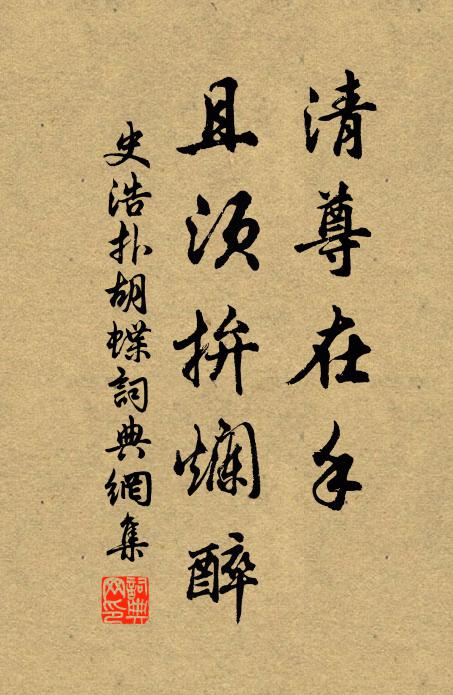 清尊在手
且須拚爛醉
史浩扑胡蝶詞典網集
詞典网印